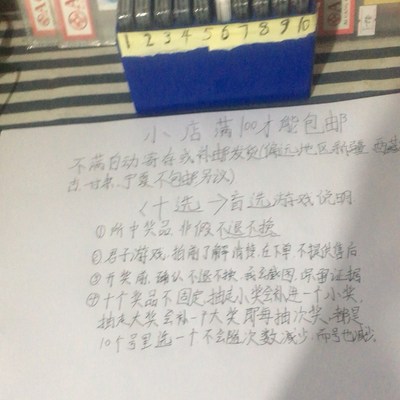 1 2 3 4 5 6 7 8 9 10
小店满100才能包邮
不满自动寄存或补邮发货(偏远地区新疆 西藏
甘肃、宁夏不包邮另议)
〈十选一〉盲选游戏说明
①所中奖品 非假不退不换
②君子游戏, 拍前了解清楚, 在下单 不提供售后
③开奖前, 确认不退不换, 我会截图, 保留证据
④十个奖品不固定, 抽走小奖会补进一个小奖,
抽走大奖会补一个大奖 即每抽次奖, 都是
10个号里选一个不会随次数减少, 而号也减少